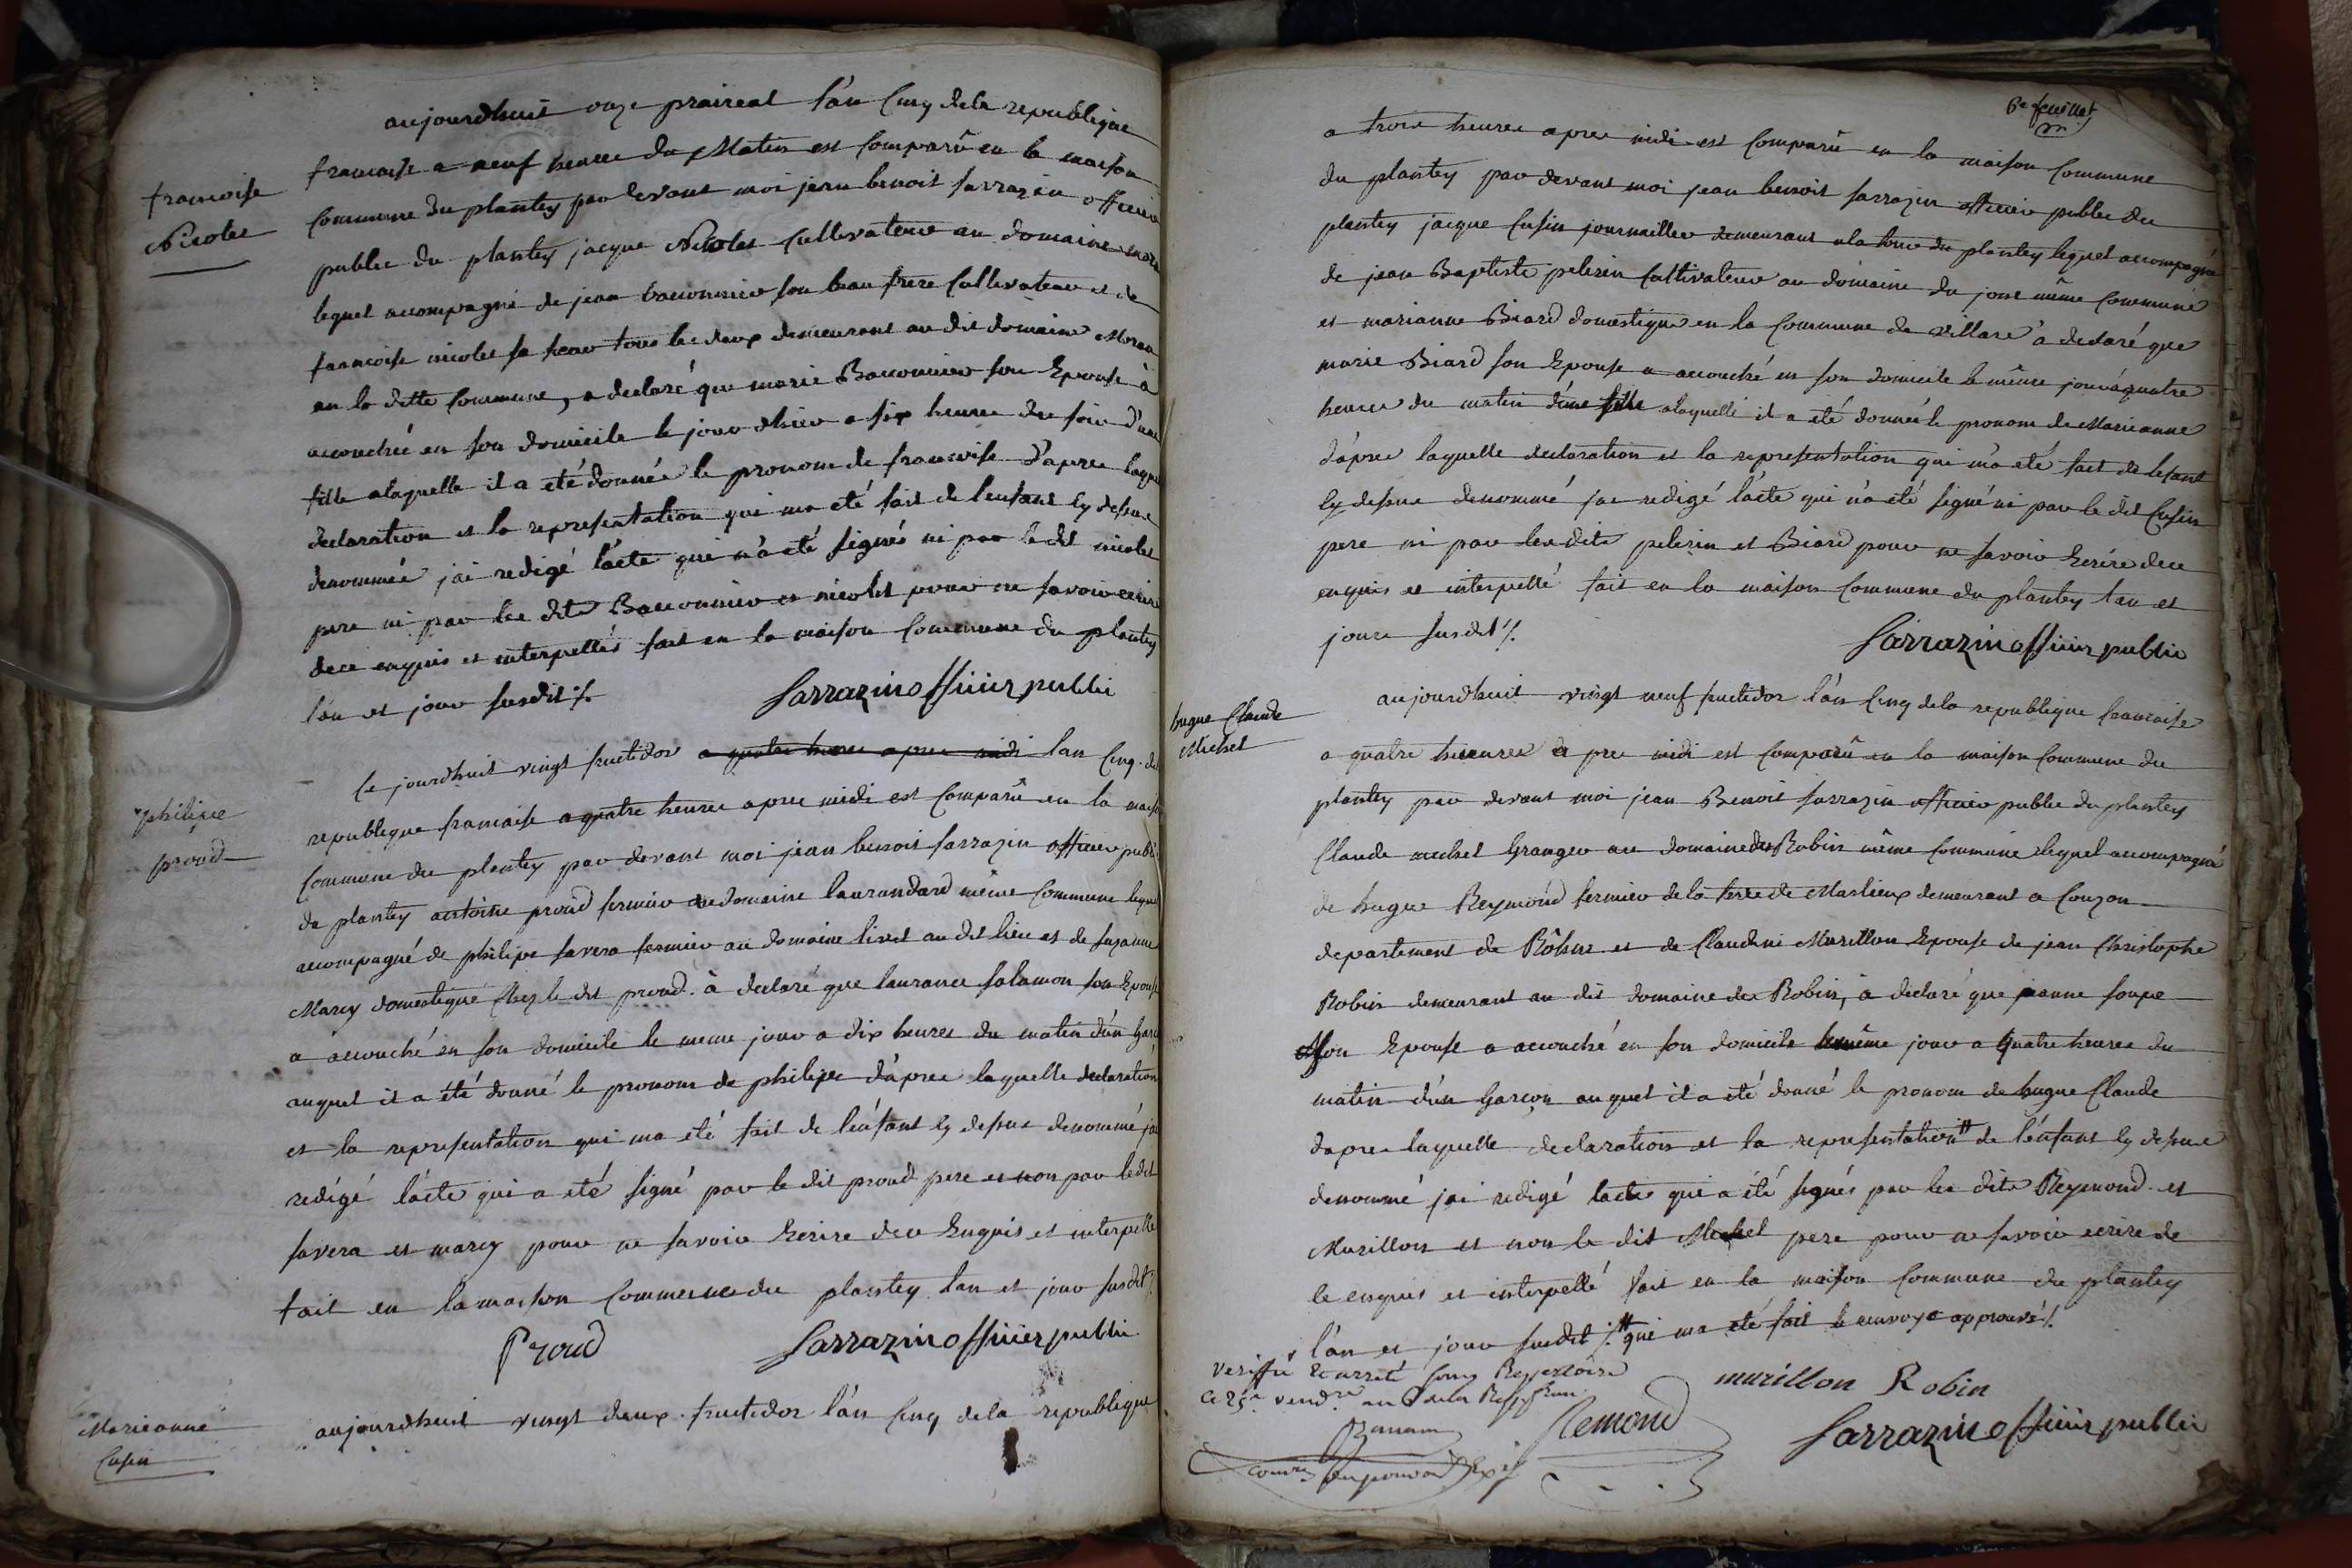 francoise
Nicolet
aujourdhuit onze praireal l'an cinq dela republique
francaise a neuf heures du Matin est comparû en la maison
commune du plantey par devant moi jean benoit sarrazin officier
public du plantey jacque Nicolet cultivateur au domaine
lequel accompagné de jean baconnier son beau frere cultivateur et de
francoise nicolet sa sœur tous les deux demeurant au dit domaine Moran
en la ditte commune, a declaré que marie Baconnier son Epouse à
accouchée en son domicile le jour dhier a six heures du soir d'une
fille alaquelle il a été donnée le pronom de francoise d'apres laque
declaration et la representation qui ma été fait de l'enfant cy dessus
denommée jai redigé l'acte qui n'a été signés ni par le dit nicolet
pere ni par les dits Baconnier et nicolet pour ne savoir ecrire
dece enquis et interpellés fait en la maison commune du plantey
l'an et jour susdit ./.
sarrazin officier public
philipe
proud
Ce jourdhuit vingt fructidor a quatre heures apres midi lan cinq de
republique francaise a quatre heures apres midi est comparû en la maiso
commune du plantey par devant moi jean benoit sarrazin officier publi
du plantey antoine proud fermier au domaine laurandard même commune leque
accompagné de philipe savera fermier au domaine livet au dit lieu et de suzanne
Marcy domestique chez le dit proud. à declaré que laurance salamon son Epouse
a accouché en son domicile le meme jour a dix heures du matin d'un Garc
auquel il a été donné le pronom de philipe d'apres laquelle declaration
et la representation qui ma eté fait de l'enfant cy dessus denommé jai
redigé l'acte qui a eté signé par le dit proud pere et non par ledit
savera et marcy pour ne savoir Ecrire dece Enquis et interpellé
fait en la maison commune du plantey lan et jour susdit ./.
Proud
sarrazin officier public
Marieanne
Cusin
aujourdhuit vingt deux fructidor l'an cinq dela republique
6e feuillet
a trois heures apres midi est comparû en la maison commune
du plantey par devant moi jean benoit sarrazin officier public du
plantey jacque Cusin journaillier demeurant ala tour du plantey lequel accompagné
de jean Baptiste pelerin cultivateur au domaine du jons même commune
et marianne Biard domestique en la commune de villars à declaré que
marie Biard son Epouse a accouché en son domicile le même jour à quatre
heures du matin d'une fille alaquelle il a été donnée le pronom de Marieanne
d'apres laquelle declaration et la representation qui m'a eté fait de lefant
cy dessus denommé jai redigé l'acte qui n'a été signé ni par le dit Cusin
pere ni par lesdits pelerin et Biard pour ne savoir Ecrire dece
enquis et interpellé fait en la maison commune du plantey lan et
jour susdit ./.
sarrazin officier public
hugue Claude
Michel
aujourdhuit vingt neuf fructidor l'an cinq dela republique francaise
a quatre heures apres midi est comparû en la maison commune du
plantey par devant moi jean Benoit sarrazin officier public du plantey
Claude michel Granger au domaine des Robin même commune lequel accompagné
de hugue Reymond fermier de la terre de Marlieux demeurant a Couzon
departement du Rôhne et de Claudine Murillon Epouse de jean Christophe
Robin demeurant au dit domaine des Robin, à declaré que jeanne soupe
son Epouse a accouché en son domicile le même jour a quatre heures du
matin d'un Garçon auquel il a été donné le pronom de hugue Claude
dapres laquelle declaration et la representation # de l'enfant cy dessus
denommé jai redigé lacte qui a été signés par les dits Reymond et
Murillon et non le dit Michel pere pour ne savoir ecrire de
le enquis et interpellé fait en la maison commune du plantey
l'an et jour susdit ./. # qui ma eté fait le renvoye approuvé ./.
verifié et arreté sous Repertoire
ce 25e vendre an 6 de la Rep fran
murillon Robin
Remond
sarrazin officier public